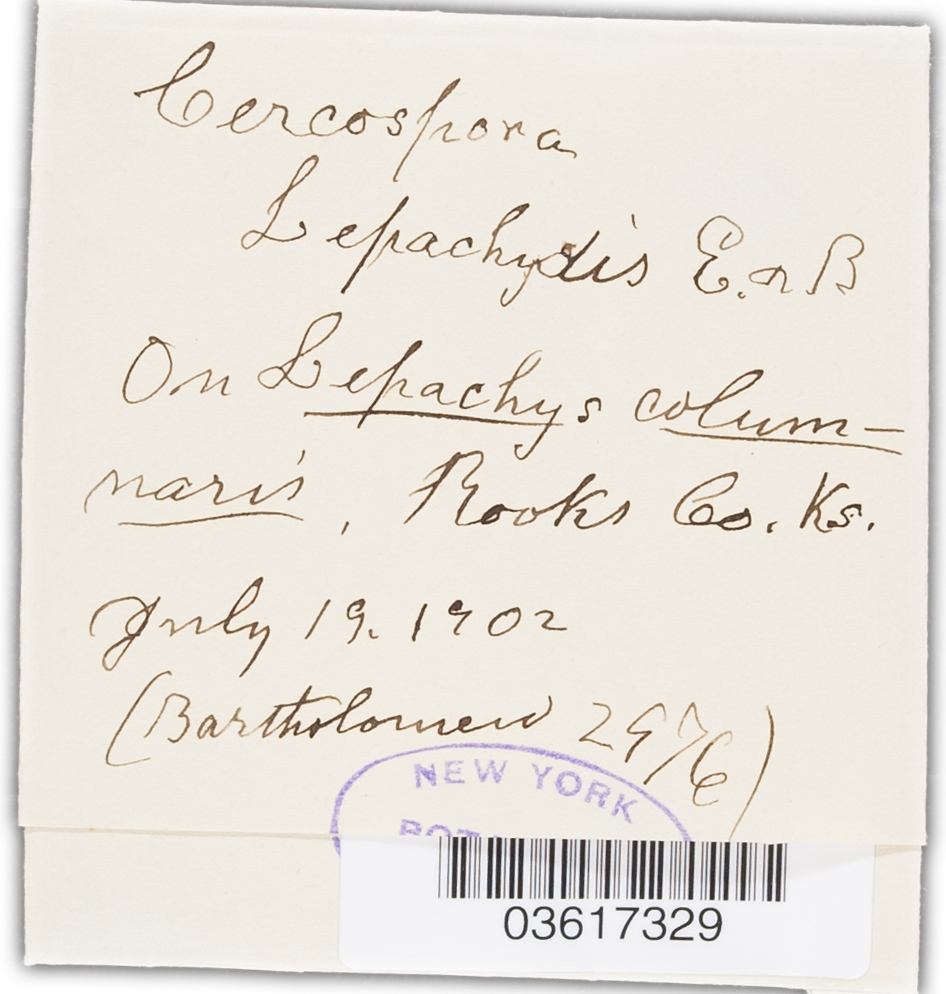 Cercospora
Lepachydis E. & B
On Lepachys colum-
naris, Rooks Co. Ks.
July 19. 1902
(Bartholomew 2976)
NEW YORK
03617329